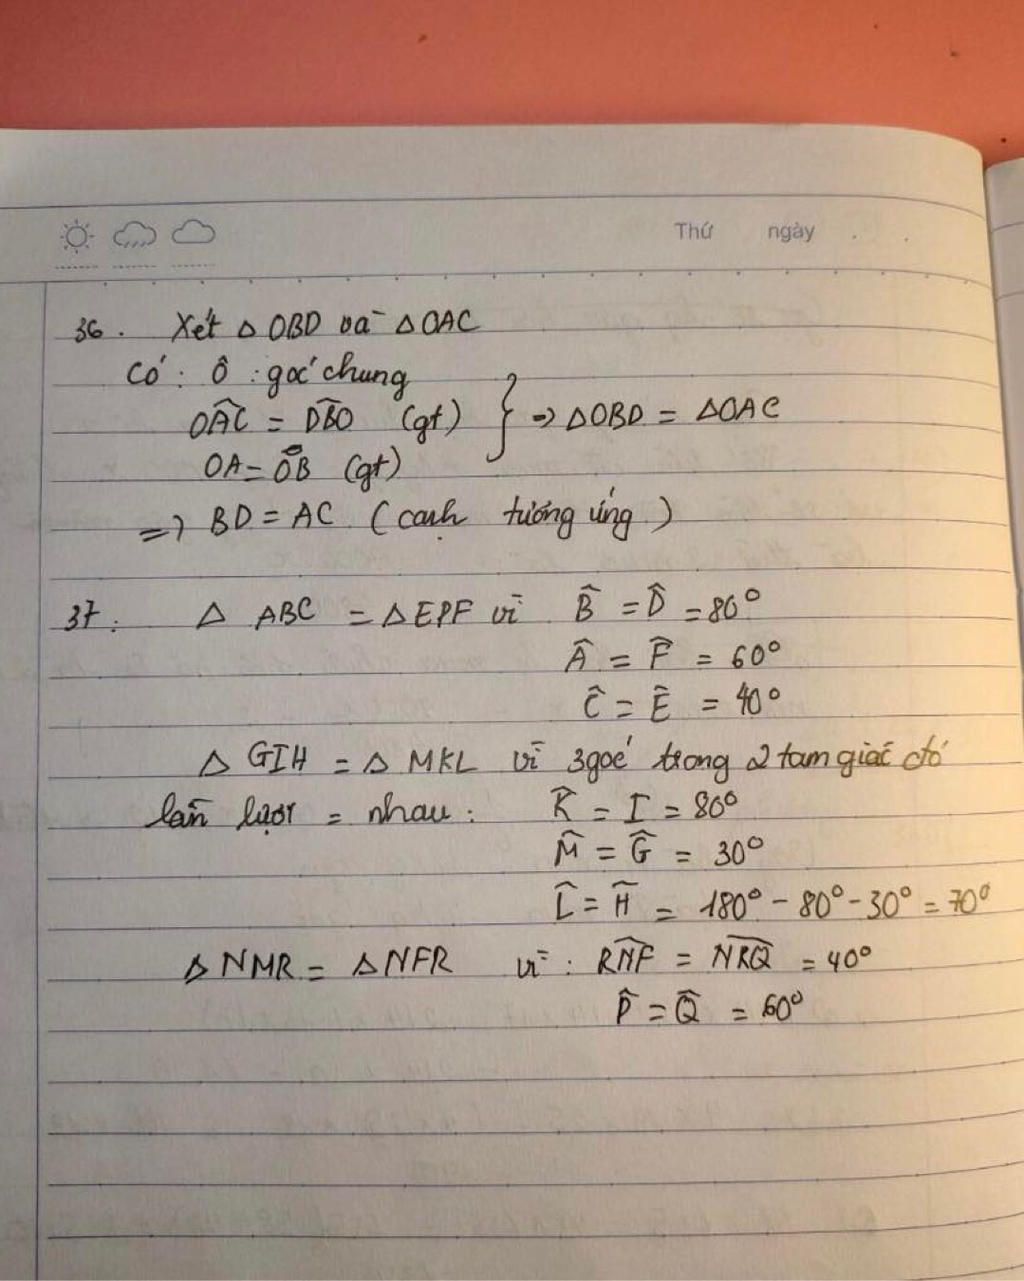 Thứ ngày . .
36. Xét △OBD và △OAC
Có: Ô : góc chung
OÂC = DB̂O (gt) } => △OBD = △OAC
OA = OB (gt)
=> BD = AC (cạnh tương ứng)
37: △ ABC = △EPF vì B̂ = D̂ = 80°
Â = F̂ = 60°
Ĉ = Ê = 40°
△ GIH = △ MKL vì 3 góc trong 2 tam giác đó
lần lượt = nhau: K̂ = I = 80°
M̂ = Ĝ = 30°
L̂ = Ĥ = 180° - 80° - 30° = 70°
△NMR = △NFR vì: RN̂F = NR̂Q = 40°
P̂ = Q̂ = 60°